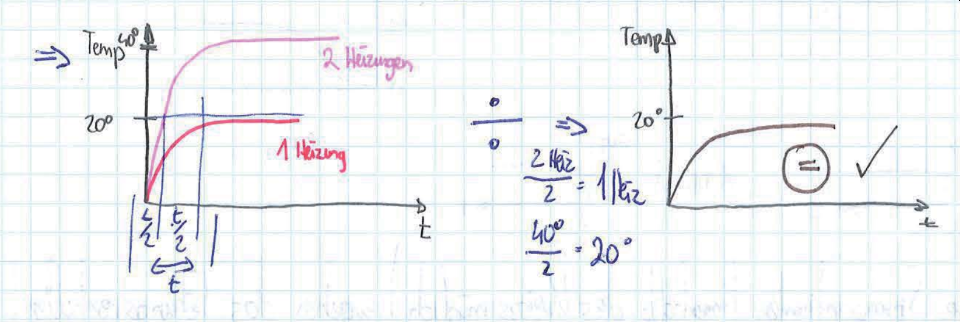 ⇒
Temp
40°
2 Heizungen
20°
1 Heizung
t/2 t/2
t
t
÷ ⇒
2 Heiz/2 = 1 Heiz
40°/2 = 20°
Temp
20°
= ✓
t